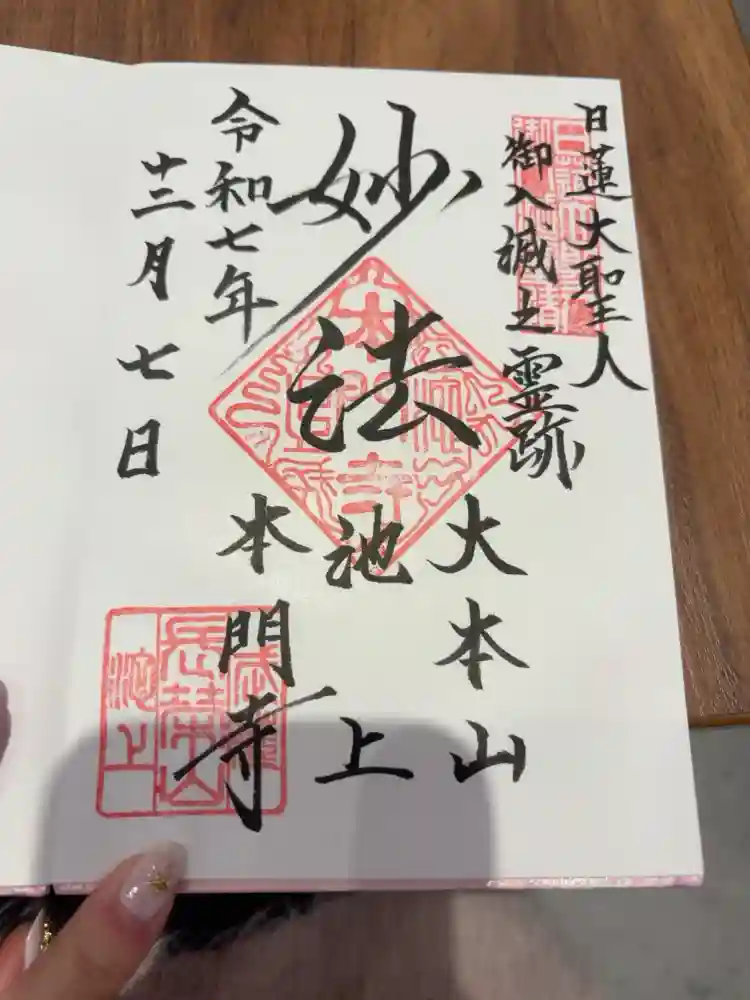 日蓮大聖人
御入滅之霊跡
妙法
大本山
池上
本門寺
令和七年
十二月七日
長榮山
池上